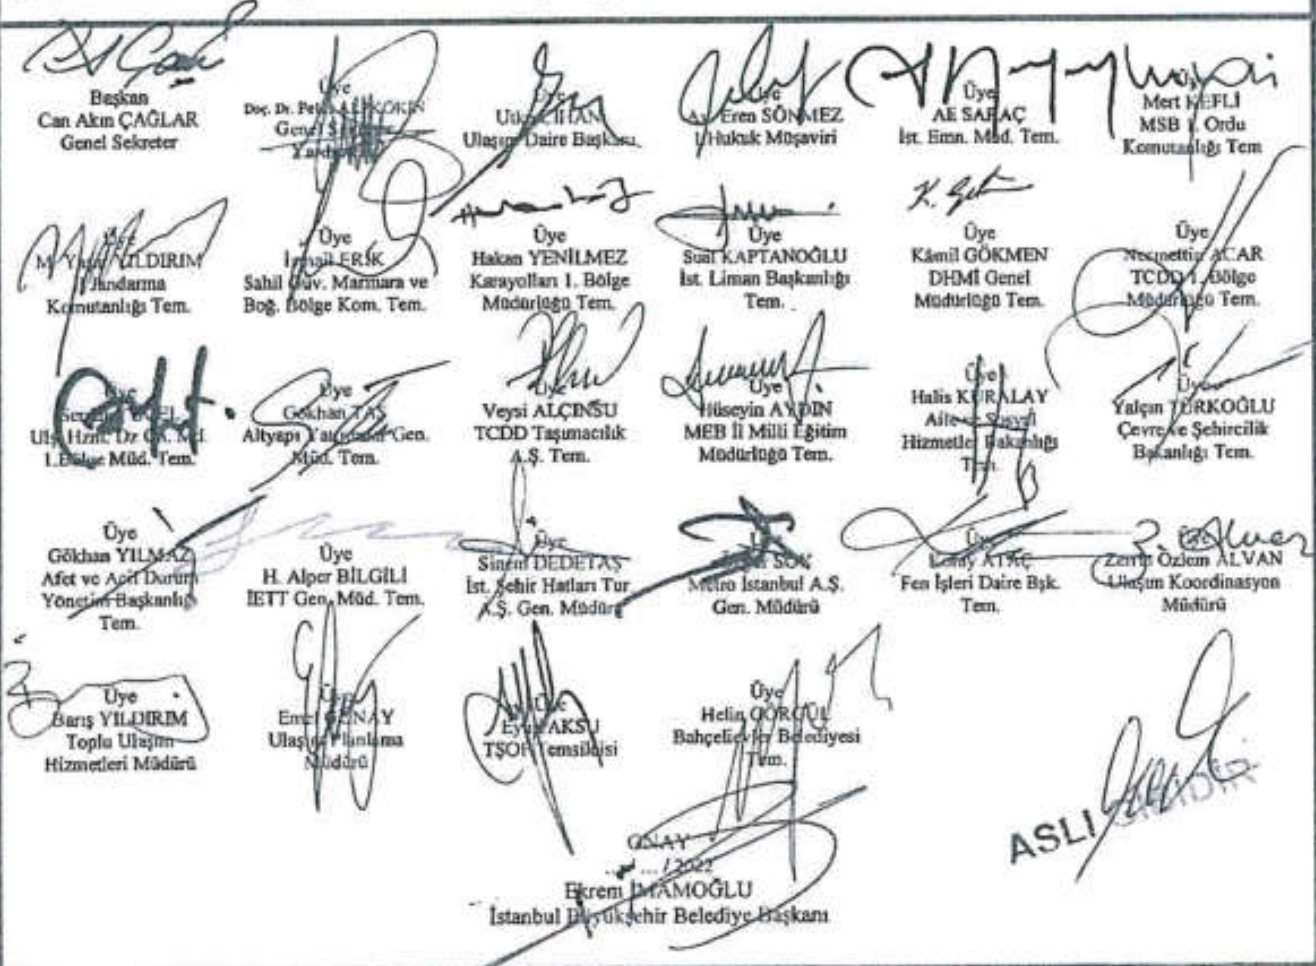 Başkan
Can Akın ÇAĞLAR
Genel Sekreter
Üye
Doç. Dr.
Genel
Üye
İHAN
Ulaşım Daire Başkanı
Üye
Eren SÖNMEZ
1.Hukuk Müşaviri
Üye
Ali SARAÇ
İst. Emn. Müd. Tem.
Mert KEFLİ
MSB 1. Ordu
Komutanlığı Tem
Üye
YILDIRIM
Jandarma
Komutanlığı Tem.
Üye
İsmail ERİK
Sahil Güv. Marmara ve
Boğ. Bölge Kom. Tem.
Üye
Hakan YENİLMEZ
Karayolları 1. Bölge
Müdürlüğü Tem.
Üye
Suat KAPTANOĞLU
İst. Liman Başkanlığı
Tem.
K.
Üye
Kâmil GÖKMEN
DHMİ Genel
Müdürlüğü Tem.
Üye
Necmettin ACAR
TCDD 1. Bölge
Müdürlüğü Tem.
Üye
Ulş. Hzm. Dz
1.Bölge Müd. Tem.
Üye
Gökhan TAŞ
Altyapı Gen.
Müd. Tem.
Üye
Veysi ALÇINSU
TCDD Taşımacılık
A.Ş. Tem.
Üye
Hüseyin AYDIN
MEB İl Milli Eğitim
Müdürlüğü Tem.
Üye
Halis KURALAY
Aile ve Sosyal
Hizmetler Bakanlığı
Tem.
Üye
Yalçın TÜRKOĞLU
Çevre ve Şehircilik
Bakanlığı Tem.
Üye
Gökhan YILMAZ
Afet ve Acil Durum
Yönetim Başkanlığı
Tem.
Üye
H. Alper BİLGİLİ
İETT Gen. Müd. Tem.
Üye
Sinem DEDETAŞ
İst. Şehir Hatları Tur
A.Ş. Gen. Müdürü
SOY
Metro İstanbul A.Ş.
Gen. Müdürü
Üye
ATAÇ
Fen İşleri Daire Bşk.
Tem.
Üye
Zerrin Özlem ALVAN
Ulaşım Koordinasyon
Müdürü
Üye
Barış YILDIRIM
Toplu Ulaşım
Hizmetleri Müdürü
Üye
Emel GÜNAY
Ulaşım Planlama
Müdürü
Üye
Eyüp AKSU
TŞOF Temsilcisi
Üye
Helin GÖRGÜL
Bahçelievler Belediyesi
Tem.
ASLI GİBİDİR
ONAY
.../ ... / 2022
Ekrem İMAMOĞLU
İstanbul Büyükşehir Belediye Başkanı